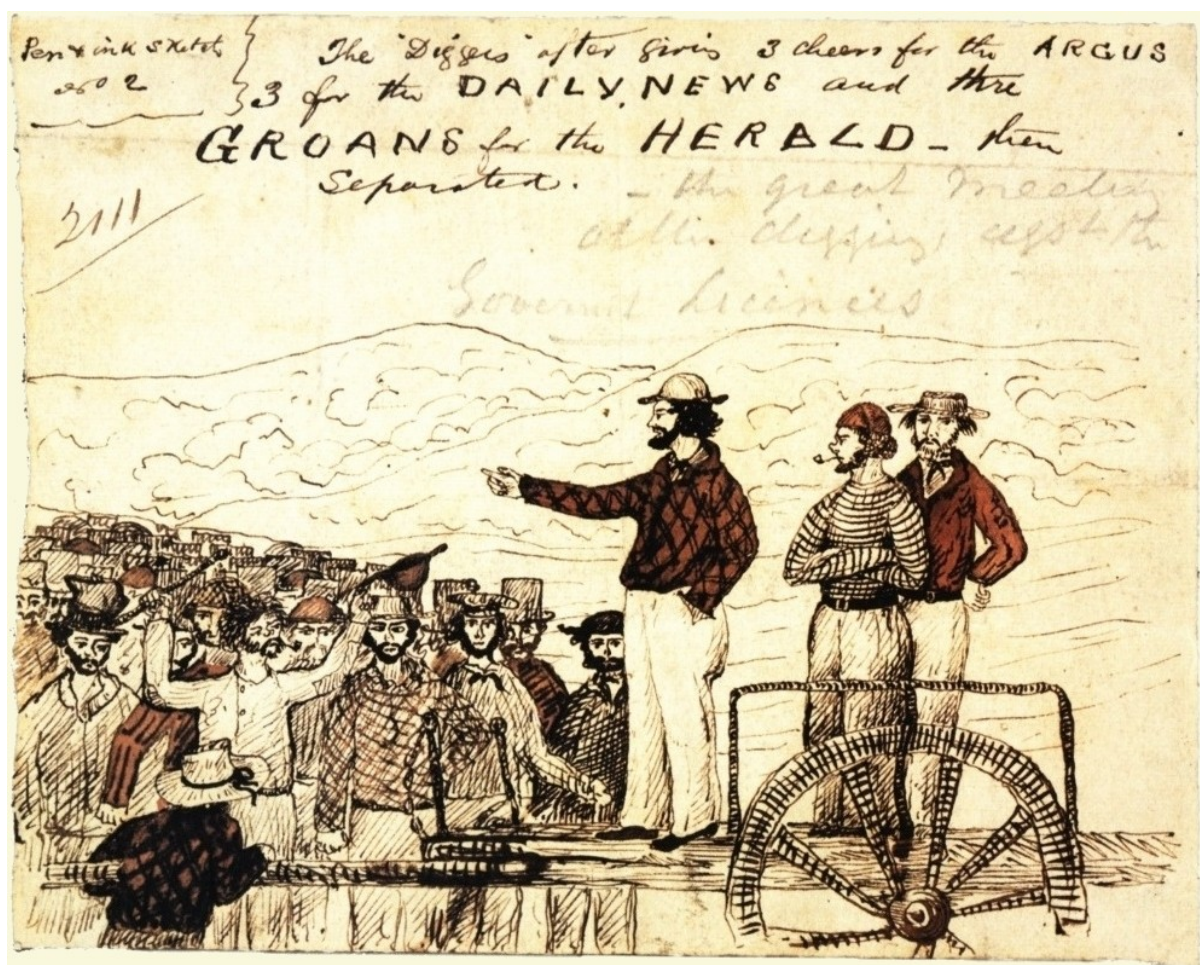 Pen & ink sketch
no 2
The "Diggers" after givin 3 cheers for the ARGUS
3 for the DAILY NEWS and three
GROANS for the HERALD - then
Separated.
- the great Meeting
at the diggings agst the
Governmt Licences
2111